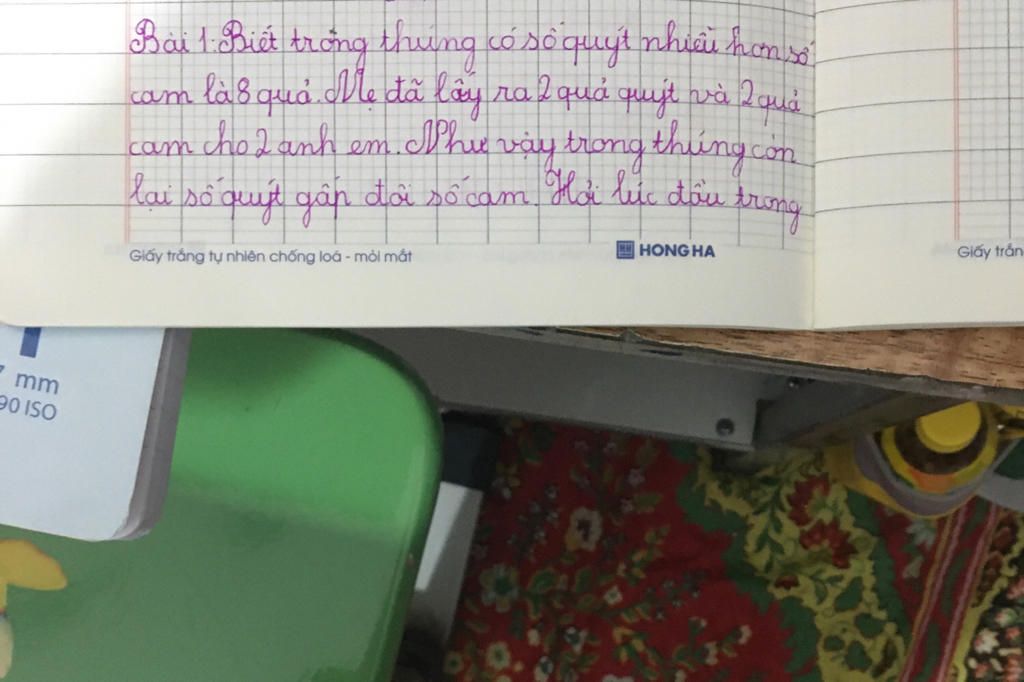 Bài 1: Biết trong thúng có số quýt nhiều hơn số
cam là 8 quả. Mẹ đã lấy ra 2 quả quýt và 2 quả
cam cho 2 anh em. Như vậy trong thúng còn
lại số quýt gấp đôi số cam. Hỏi lúc đầu trong
Giấy trắng tự nhiên chống loá - mỏi mắt
HONG HA
Giấy trắn
mm
90 ISO